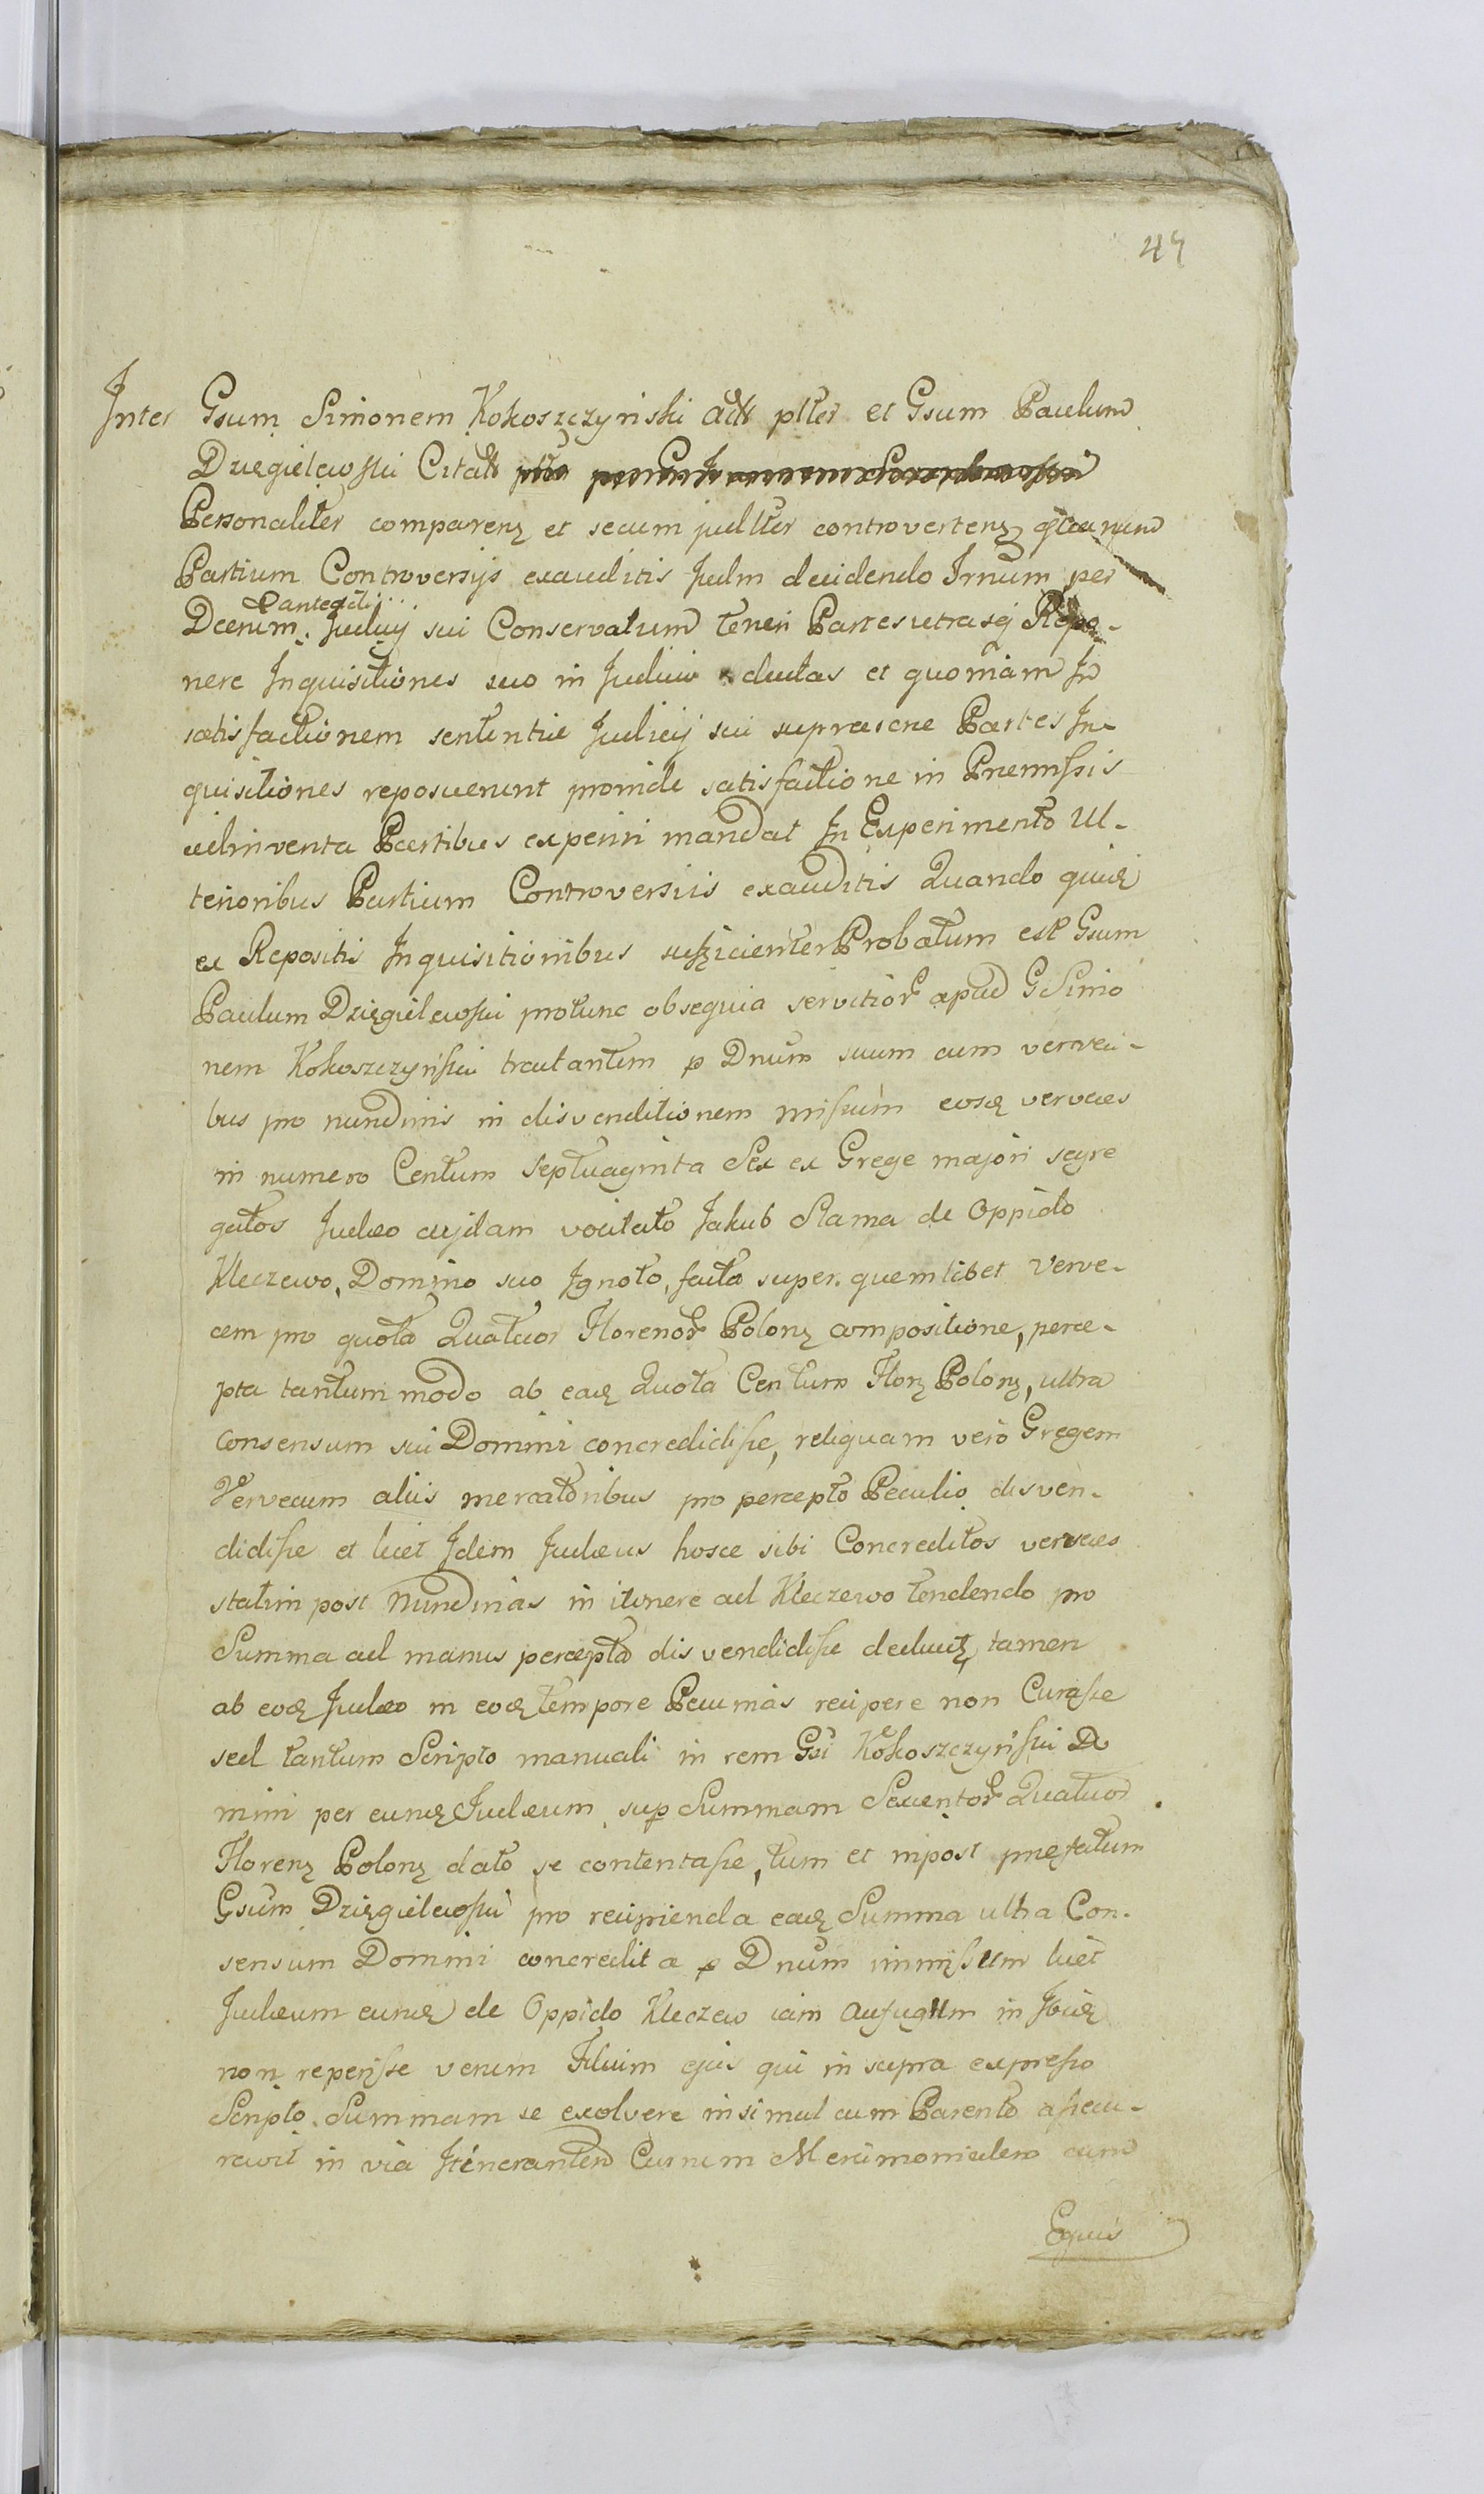 49
Inter Gsum Simonem Kokoszczyński Act plter et Gsum Paulum
Dzięgielewski Citat
Personaliter comparenz et secum judltter controvertenz quarum
Partium Controversijs exauditis Judm decidendo Irnum per
Pantecedi...
Dcerum. Judicij sui Conservatum teneri Partes utrasq Repo-
nere Inquisitiones suo in Judicio ductas et quoniam In
satisfactionem sententiæ Judicij sui suprascne Partes In-
quisitiones reposuerunt proinde satisfactione in Præmissis
adinventa Partibus experiri mandat In Experimento Ul-
terioribus Partium Controversiis exauditis Quando quid
ex Repositis Inquisitionibus sufficienter Probatum est Gsum
Paulum Dzięgielewski protunc obsequia servitior apud G Simo
nem Kokoszczyński tractantem p Dnum suum cum verveci-
bus pro nundinis in disvenditionem missum eosd verveces
in numero Centum Septuaginta Sex ex Grege majori segre
gatos Judæo cujdam vocitato Jakub Slama de Oppido
Kleczewo, Domino suo Ignoto, facta super quemlibet Verve-
cem pro quota Quatuor Florenor Polonz compositione, perce-
pta tantummodo ab ead Quota Centum Florz Polonz, ultra
consensum sui Domini concredidisse, reliquam vero Gregem
Vervecum aliis mercatoribus pro percepto Peculio disven-
didisse et licet Idem Judæus hosce sibi Concreditos verveces
statim post Nundinas in itinere ad Kleczewo tendendo pro
Summa ad manus percepta disvendidisse deducit, tamen
ab eod Judæo in eod tempore Pecunias recipere non Curasse
sed tantum Scripto manuali in rem Gsi Kokoszczyński Do
mini per eund Judæum sup Summam Sexentor Quatuor
Florenz Polonz dato se contentasse, tum et inpost præfatum
Gsum Dzięgielewski pro recipienda ead Summa ultra Con-
sensum Domini concredita p Dnum immissum licet
Judæum eund de Oppido Kleczew iam aufugitum in Ibid
non reperisse verum Filium ejus qui in supra expresso
Scripto Summam se exolvere insimul cum Parente assecu-
ravit in via Itinerantem Currum Mercimonialem cum
Equis